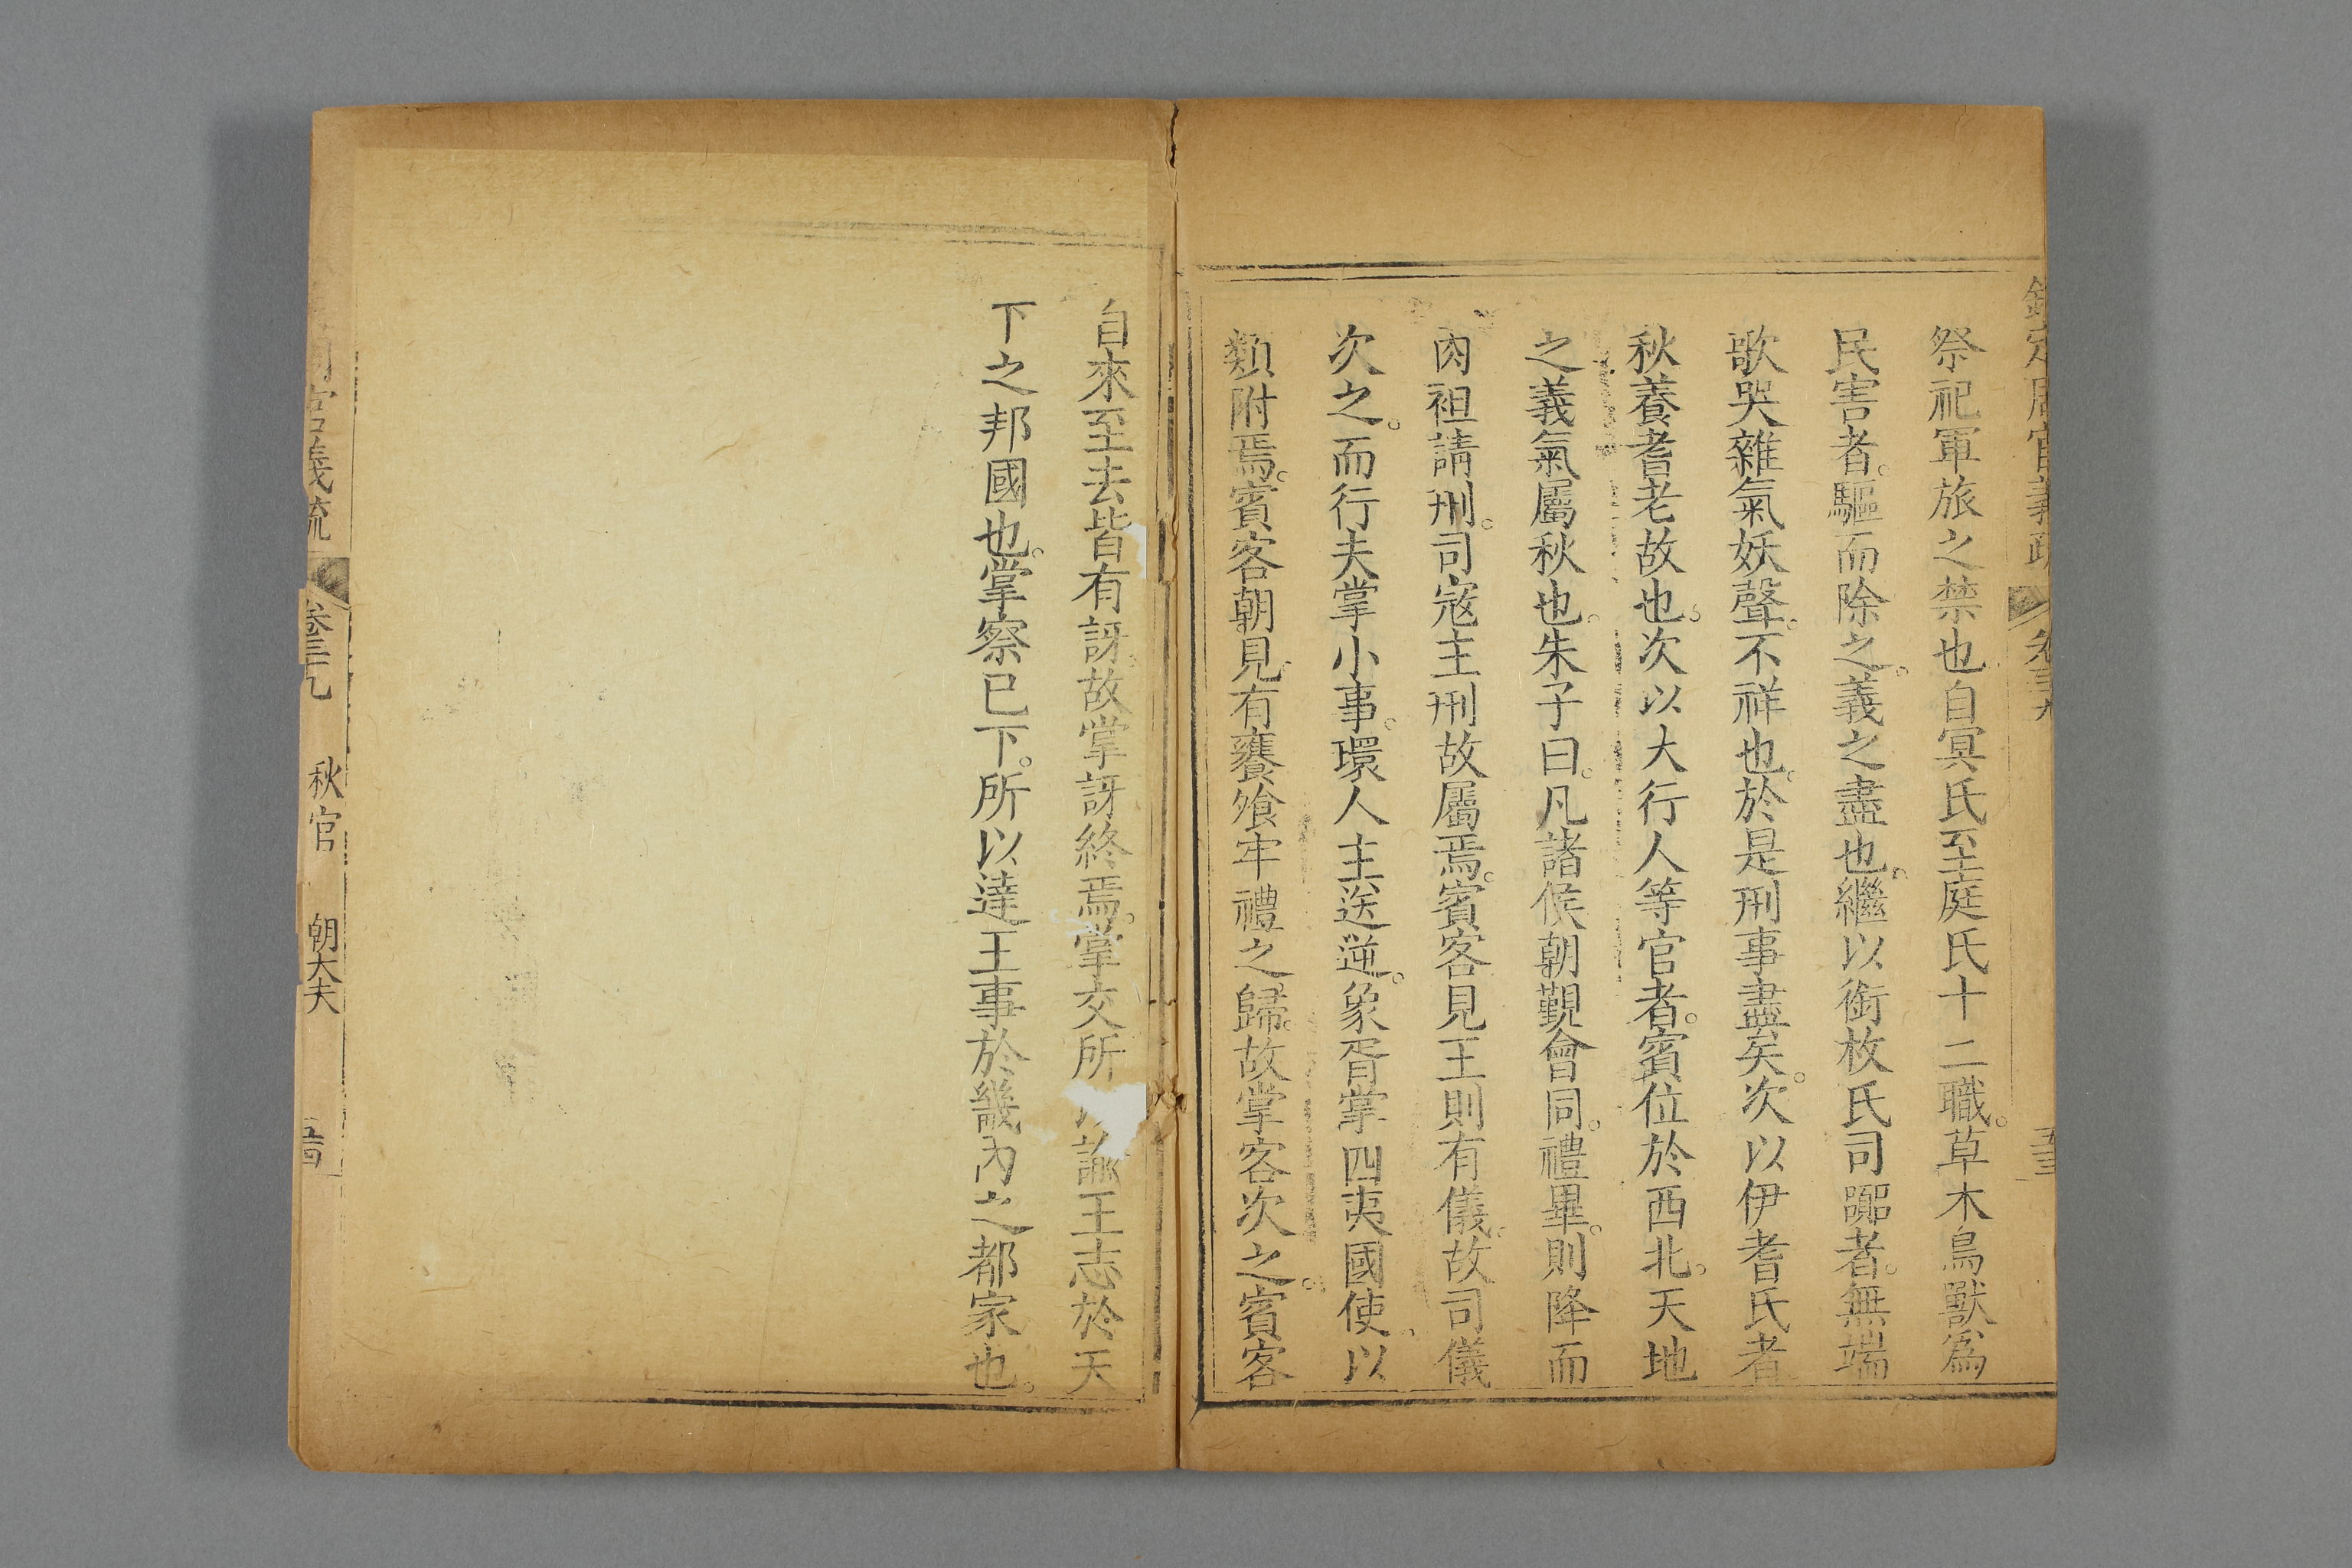 欽定周官義疏 卷三十九 五三
祭祀軍旅之禁也自冥氏至庭氏十二職。草木鳥獸爲
民害者。驅而除之。義之盡也。繼以銜枚氏司嚻者。無端
歌哭雜氣妖聲。不祥也。於是刑事盡矣。次以伊耆氏者
秋養耆老故也。次以大行人等官者。賓位於西北。天地
之義氣屬秋也。朱子曰。凡諸侯朝覲會同。禮畢。則降而
肉袒請刑。司寇主刑故屬焉。賓客見王則有儀。故司儀
次之。而行夫掌小事。環人主送逆。象胥掌四夷國使。以
類附焉。賓客朝見。有饔飧牢禮之歸。故掌客次之。賓客
自來至去皆有訝。故掌訝終焉。掌交所 諭王志於天
下之邦國也。掌察已下。所以達王事於畿內之都家也。
周官義疏 卷三十九 秋官 朝大夫 五四